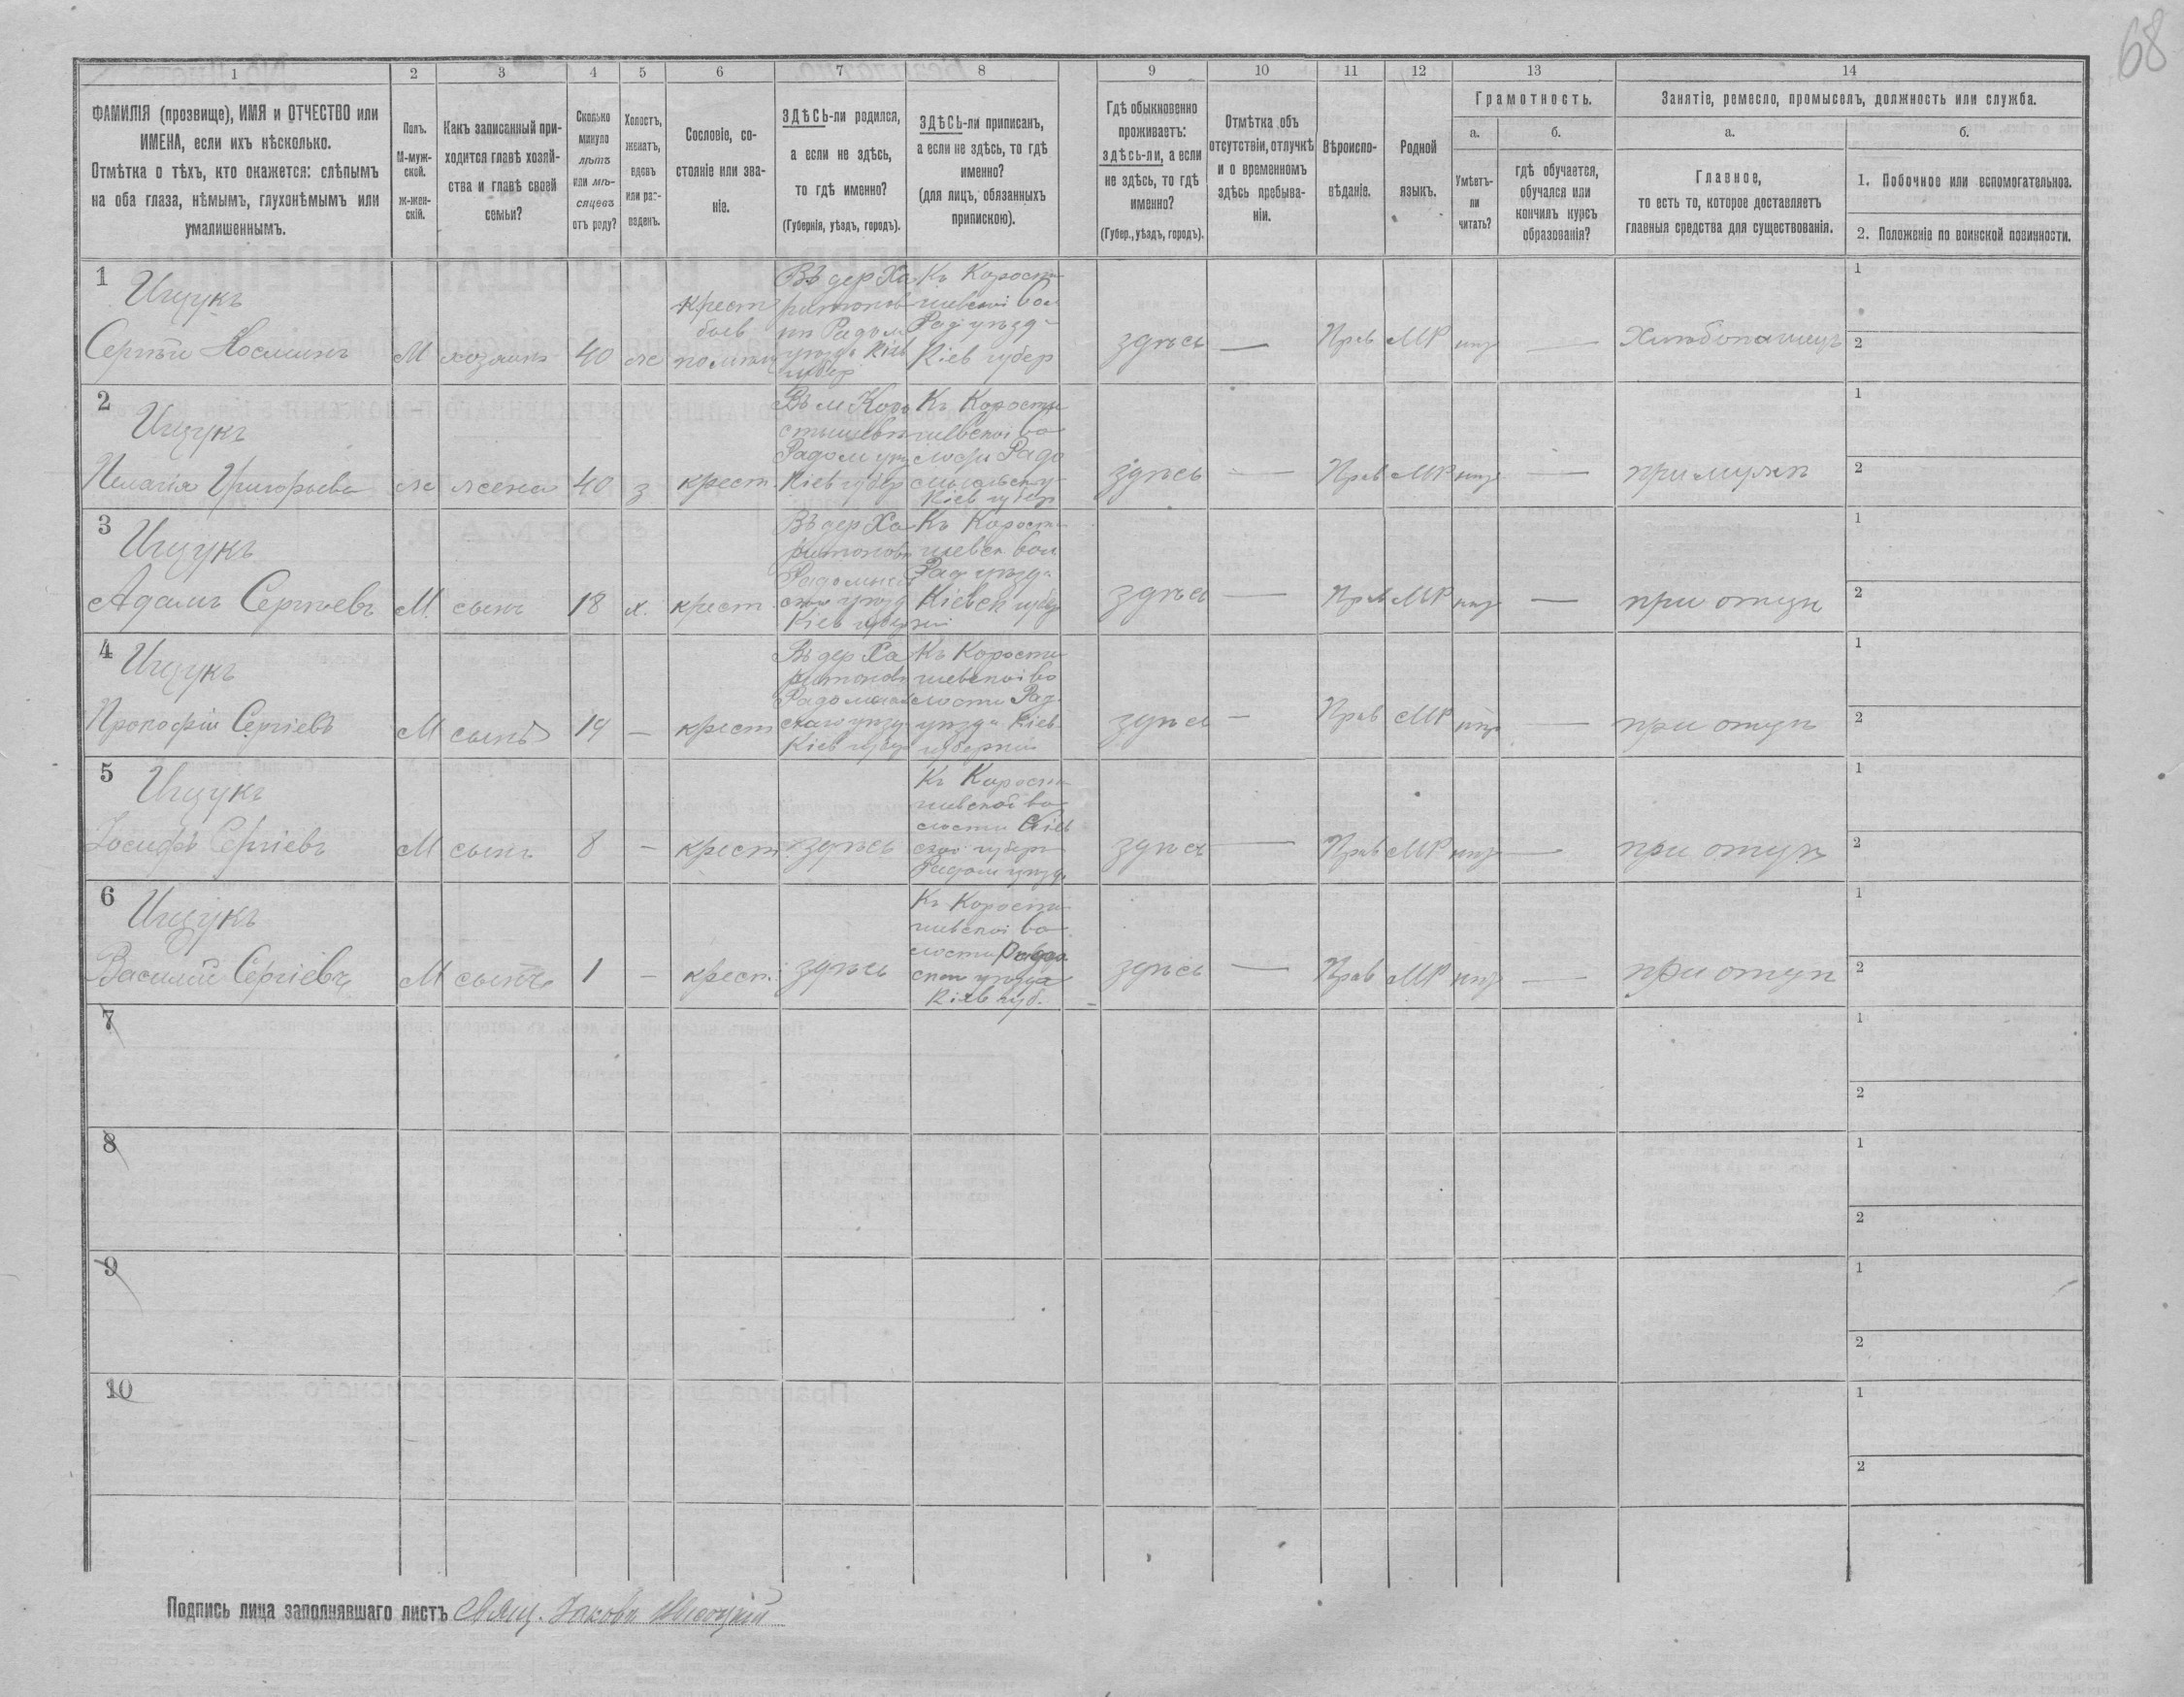 68
1 2 3 4 5 6 7 8 9 10 11 12 13 14
ФАМИЛІЯ (прозвище), ИМЯ и ОТЧЕСТВО или
ИМЕНА, если ихъ нѣсколько.
Отмѣтка о тѣхъ, кто окажется: слѣпымъ
на оба глаза, нѣмымъ, глухонѣмымъ или
умалишеннымъ.
Полъ.
М-муж-
ской.
ж-жен-
скій.
Какъ записанный при-
ходится главѣ хозяй-
ства и главѣ своей
семьи?
Сколько
минуло
лѣтъ
или мѣ-
сяцевъ
отъ роду?
Холостъ,
женатъ,
вдовъ
или раз-
веденъ.
Сословіе, со-
стояніе или зва-
ніе.
ЗДѢСЬ-ли родился,
а если не здѣсь,
то гдѣ именно?
(Губернія, уѣздъ, городъ).
ЗДѢСЬ-ли приписанъ,
а если не здѣсь, то гдѣ
именно?
(для лицъ, обязанныхъ
припискою).
Гдѣ обыкновенно
проживаетъ:
здѣсь-ли, а если
не здѣсь, то гдѣ
именно?
(Губер., уѣздъ, городъ).
Отмѣтка объ
отсутствіи, отлучкѣ
и о временномъ
здѣсь пребыва-
ніи.
Вѣроиспо-
вѣданіе.
Родной
языкъ.
Грамотность.
а. б.
Умѣетъ-
ли
читать?
гдѣ обучается,
обучался или
кончилъ курсъ
образованія?
Занятіе, ремесло, промыселъ, должность или служба.
а. б.
Главное,
то есть то, которое доставляетъ
главныя средства для существованія.
1. Побочное или вспомогательное.
2. Положеніе по воинской повинности.
1
Ищукъ
Сергѣй
М хозяинъ 40 ж
крест
Въ дер Ха
ритонов
Кіев
губер
Къ Корости
шевской вол
Рад уѣзда
Кіев губер
здѣсь — Прав МР —
1
2
2
Ищукъ
Пелагія Григорьева
ж жена 40 з крест.
Въ м Коро
стышев
Радом
Кіев губер
Къ Корости
шевской во
лости Радо
мысльск у
Кіев губер
здѣсь — Прав МР — при мужѣ
1
2
3
Ищукъ
Адамъ Сергѣевъ
М. сынъ 18 х. крест.
Въ дер Ха
ритонов
Къ Корости
шевск вол
Рад уѣзда
Кіевск губер
здѣсь — МР — при отцѣ
1
2
4
Ищукъ
Прокофій Сергіевъ
М сынъ 14 — крест
Въ дер Ха
ритонов
скаго уѣзд
Кіев
Къ Корости
шевской во
лости Рад
уѣзда Кіев
губерніи
здѣсь — Прав МР — при отцѣ
1
2
5
Ищукъ
Іосифъ Сергіевъ
М сынъ 8 — крест. здѣсь
Къ Корости
шевской во
лости Кіев
ской губерн
Радом уѣзда
здѣсь — Прав МР — при отцѣ
1
2
6
Ищукъ
Василій Сергіевъ
М сынъ 1 — крест. здѣсь
Къ Корости
шевской во
лости
уѣзда
Кіев губ.
здѣсь — Прав МР — при отцѣ
1
2
7
1
2
8
1
2
9
1
2
10
1
2
Подпись лица заполнявшаго листъ Свящ.